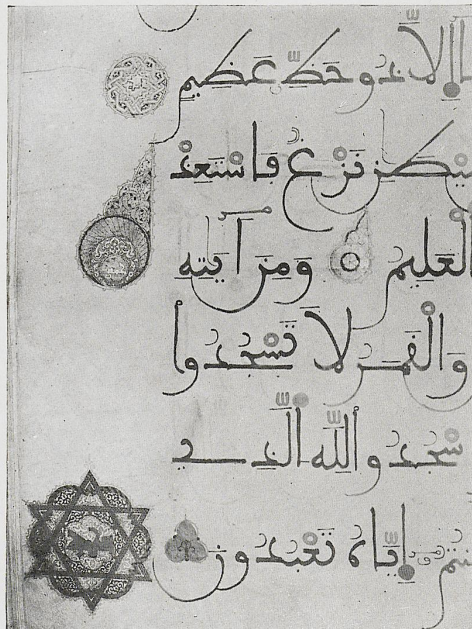 إلا ذو حظ عظيم
يطن نزغ فاستعذ
العليم ومن ءايته
والقمر لا تسجدوا
سجدوا لله الذي
نتم إياه تعبدون